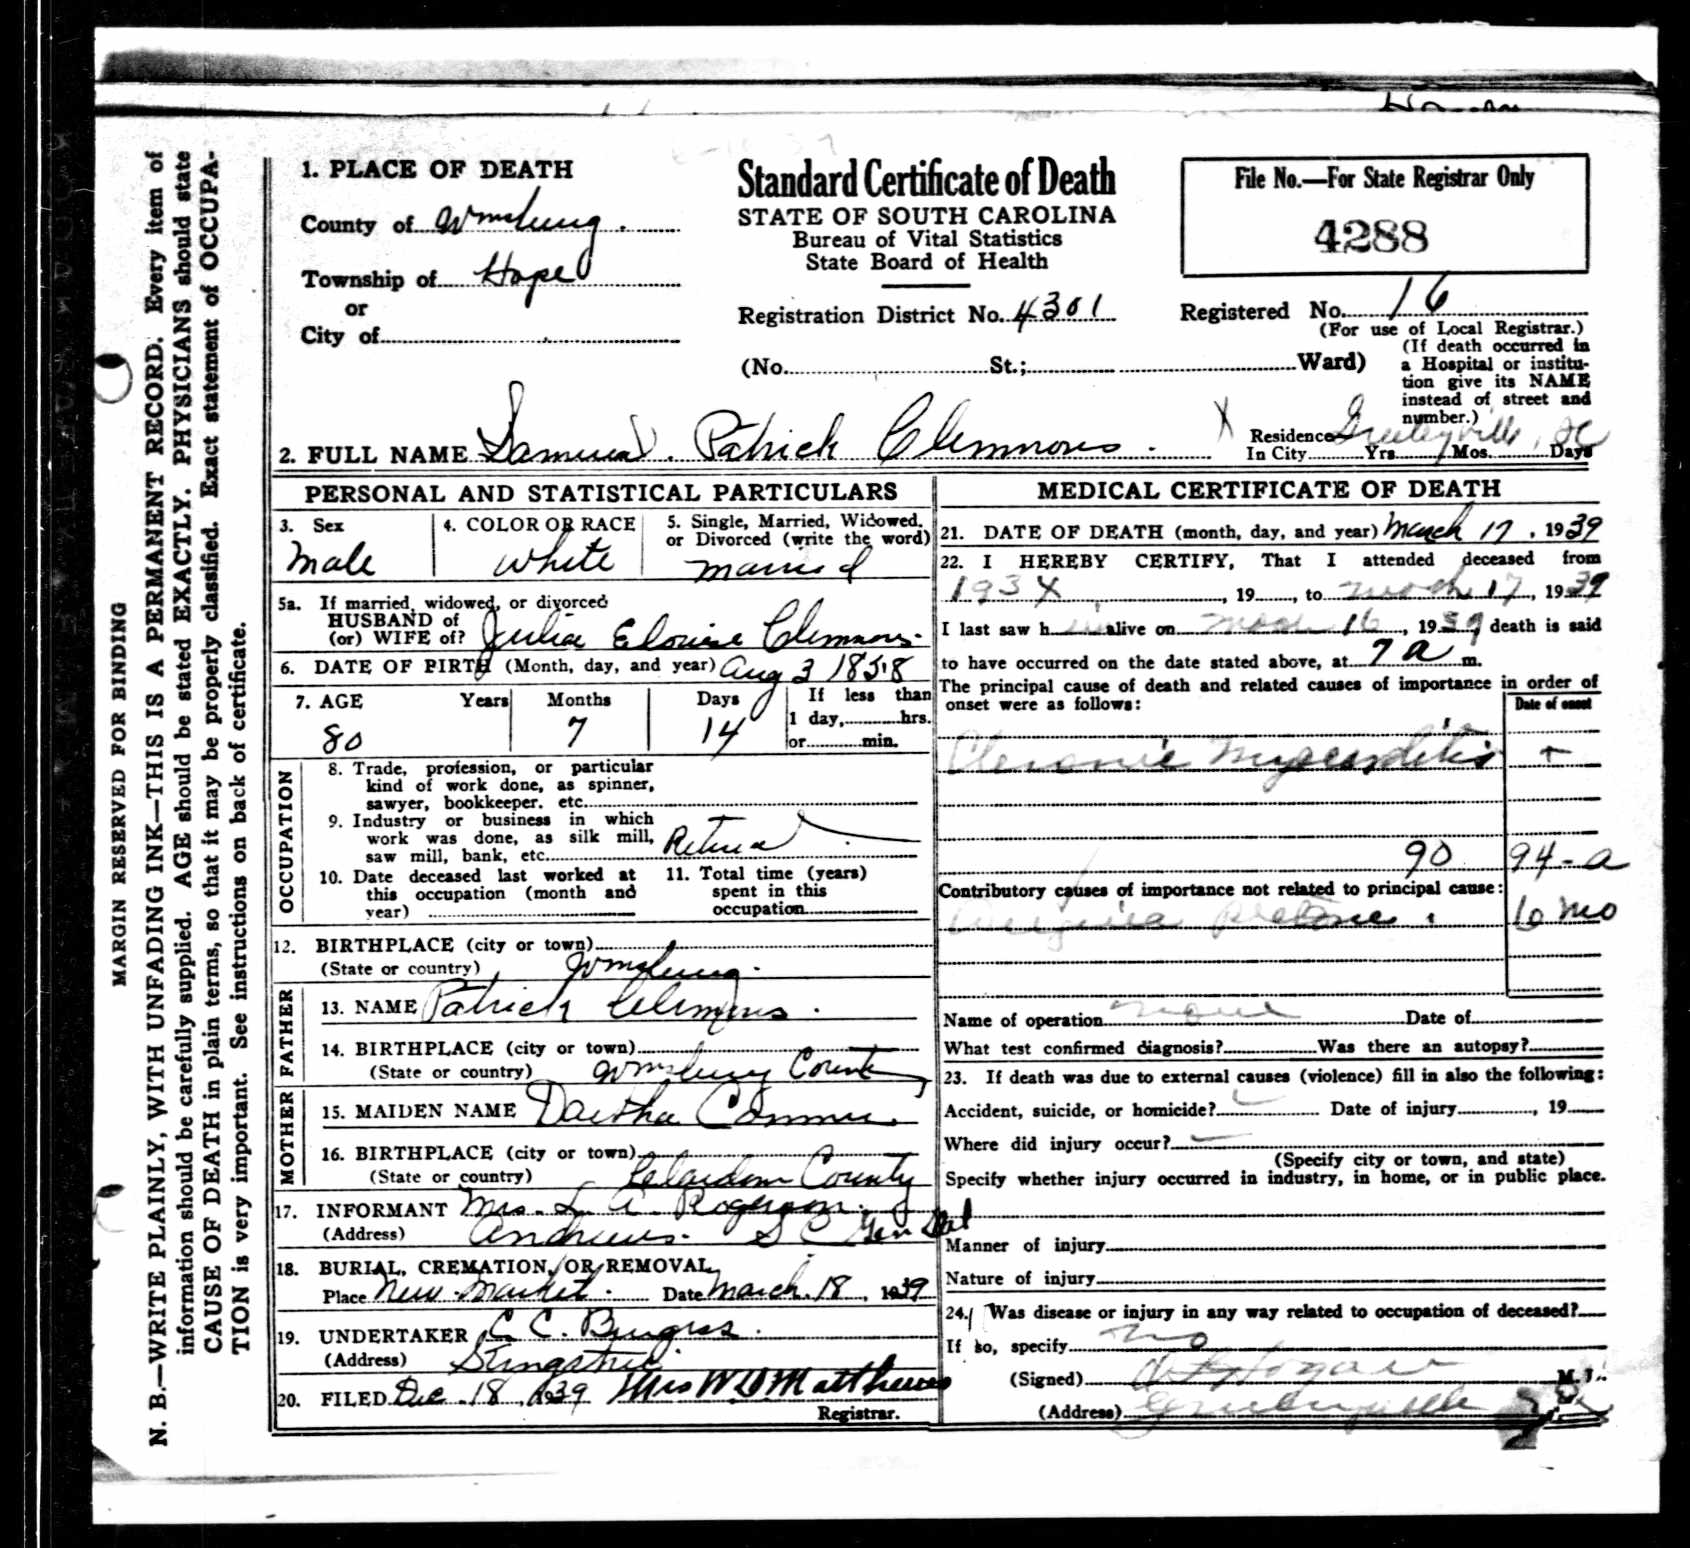 1. PLACE OF DEATH
County of Wmsburg.
Township of Hope
or
City of
Standard Certificate of Death
STATE OF SOUTH CAROLINA
Bureau of Vital Statistics
State Board of Health
Registration District No. 4301
(No. St.; Ward)
File No.—For State Registrar Only
4288
Registered No. 16
(For use of Local Registrar.)
(If death occurred in
a Hospital or institu-
tion give its NAME
instead of street and
number.)
2. FULL NAME Samuel Patrick Clemmons.
Residence Greeleyville, SC
In City Yrs. Mos. Days
PERSONAL AND STATISTICAL PARTICULARS
3. Sex
Male
4. COLOR OR RACE
white
5. Single, Married, Widowed,
or Divorced (write the word)
married
5a. If married, widowed, or divorced
HUSBAND of
(or) WIFE of? Julia Elouise Clemmons.
6. DATE OF BIRTH (Month, day, and year) Aug 3 1858
7. AGE Years Months Days If less than
1 day, hrs.
or min.
80 7 14
OCCUPATION
8. Trade, profession, or particular
kind of work done, as spinner,
sawyer, bookkeeper, etc.
9. Industry or business in which
work was done, as silk mill,
saw mill, bank, etc. Retired
10. Date deceased last worked at
this occupation (month and
year)
11. Total time (years)
spent in this
occupation
12. BIRTHPLACE (city or town)
(State or country) Wmsburg.
FATHER
13. NAME Patrick Clemmons.
14. BIRTHPLACE (city or town)
(State or country) Wmsburg County
MOTHER
15. MAIDEN NAME
16. BIRTHPLACE (city or town)
(State or country) Clarendon County
17. INFORMANT Mrs. L. A. Rogerson.
(Address) Andrews. S C
18. BURIAL, CREMATION, OR REMOVAL
Place New Market. Date March. 18, 1939
19. UNDERTAKER C. C. Burgess.
(Address)
20. FILED Dec. 18, 1939 Mrs W D Matthews
Registrar.
MEDICAL CERTIFICATE OF DEATH
21. DATE OF DEATH (month, day, and year) March 17, 1939
22. I HEREBY CERTIFY, That I attended deceased from
, 19 , to March 17, 1939
I last saw h im alive on March 16, 1939 death is said
to have occurred on the date stated above, at 7 a m.
The principal cause of death and related causes of importance in order of
onset were as follows:
Date of onset
Chronic Myocarditis +
90 94-a
Contributory causes of importance not related to principal cause:
Angina pectoris. 10 mo
Name of operation none Date of
What test confirmed diagnosis? Was there an autopsy?
23. If death was due to external causes (violence) fill in also the following:
Accident, suicide, or homicide? Date of injury , 19
Where did injury occur?
(Specify city or town, and state)
Specify whether injury occurred in industry, in home, or in public place.
Manner of injury
Nature of injury
24. Was disease or injury in any way related to occupation of deceased?
If so, specify no
(Signed) M. D.
(Address) Greeleyville
MARGIN RESERVED FOR BINDING
N. B.—WRITE PLAINLY, WITH UNFADING INK—THIS IS A PERMANENT RECORD. Every item of
information should be carefully supplied. AGE should be stated EXACTLY. PHYSICIANS should state
CAUSE OF DEATH in plain terms, so that it may be properly classified. Exact statement of OCCUPA-
TION is very important. See instructions on back of certificate.